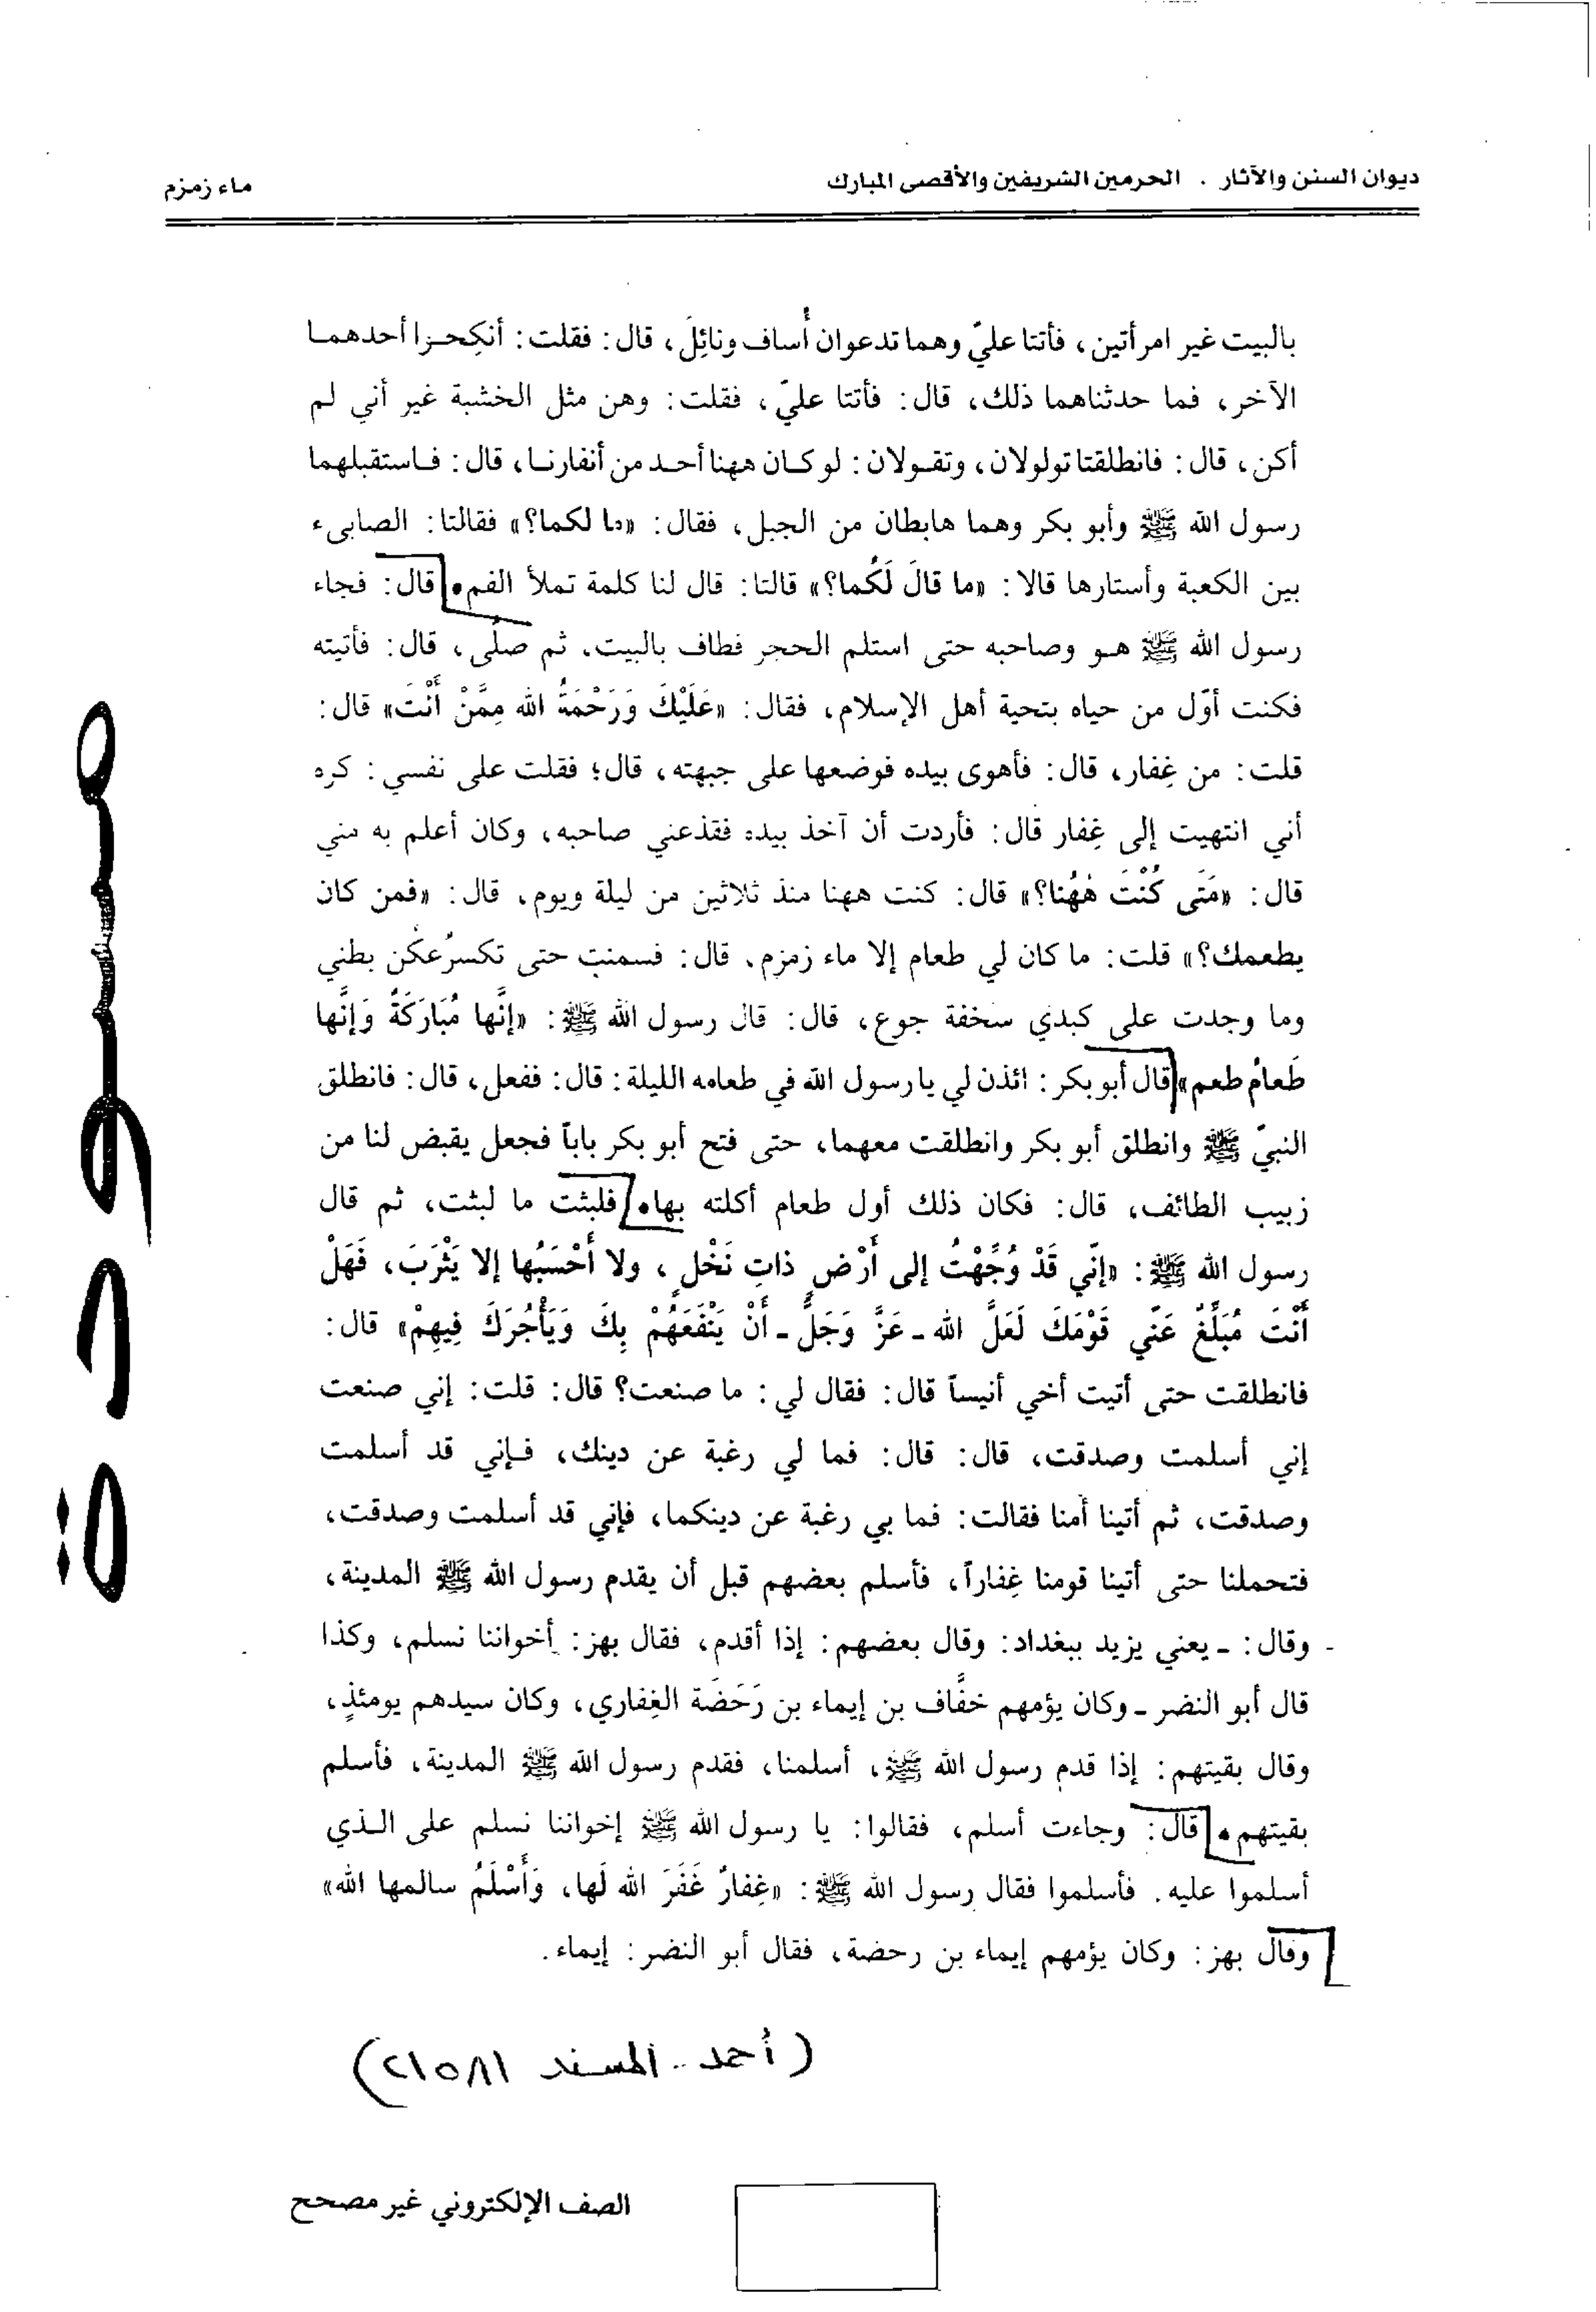 ديوان السنن والآثار . الحرمين الشريفين والأقصى المبارك
ماء زمزم
بالبيت غير امرأتين، فأتتا عليّ وهما تدعوان أُساف ونائِلَ، قال: فقلت: أنكِحوا أحدهما
الآخر، فما حدثناهما ذلك، قال: فأتتا عليّ، فقلت: وهن مثل الخشبة غير أني لم
أكن، قال: فانطلقتا تولولان، وتقولان: لو كان ههنا أحد من أنفارنا، قال: فاستقبلهما
رسول الله ﷺ وأبو بكر وهما هابطان من الجبل، فقال: «ما لكما؟» فقالتا: الصابىء
بين الكعبة وأستارها قالا: «ما قالَ لَكُما؟» قالتا: قال لنا كلمة تملأ الفم. قال: فجاء
رسول الله ﷺ هو وصاحبه حتى استلم الحجر فطاف بالبيت، ثم صلّى، قال: فأتيته
فكنت أوّل من حياه بتحية أهل الإسلام، فقال: «عَلَيْكَ وَرَحْمَةُ الله مِمَّنْ أَنْتَ» قال:
قلت: من غِفار، قال: فأهوى بيده فوضعها على جبهته، قال؛ فقلت على نفسي: كره
أني انتهيت إلى غِفار قال: فأردت أن آخذ بيده فقذعني صاحبه، وكان أعلم به مني
قال: «مَتَى كُنْتَ هٰهُنا؟» قال: كنت ههنا منذ ثلاثين من ليلة ويوم، قال: «فمن كان
يطعمك؟» قلت: ما كان لي طعام إلا ماء زمزم، قال: فسمنت حتى تكسرُ عكَن بطني
وما وجدت على كبدي سخفة جوع، قال: قال رسول الله ﷺ: «إِنَّها مُبَارَكَةٌ وَإِنَّها
طَعامُ طعم» قال أبو بكر: ائذن لي يا رسول الله في طعامه الليلة: قال: ففعل، قال: فانطلق
النبيّ ﷺ وانطلق أبو بكر وانطلقت معهما، حتى فتح أبو بكر باباً فجعل يقبض لنا من
زبيب الطائف، قال: فكان ذلك أول طعام أكلته بها. فلبثت ما لبثت، ثم قال
رسول الله ﷺ: «إنّي قَدْ وُجِّهْتُ إلى أَرْضٍ ذاتِ نَخْلٍ، ولا أَحْسَبُها إلا يَثْرَبَ، فَهَلْ
أَنْتَ مُبَلِّغٌ عَنّي قَوْمَكَ لَعَلَّ الله ـ عَزَّ وَجَلَّ ـ أَنْ يَنْفَعَهُمْ بِكَ وَيَأْجُرَكَ فِيهِمْ» قال:
فانطلقت حتى أتيت أخي أنيساً قال: فقال لي: ما صنعت؟ قال: قلت: إني صنعت
إني أسلمت وصدقت، قال: قال: فما لي رغبة عن دينك، فإني قد أسلمت
وصدقت، ثم أتينا أمنا فقالت: فما بي رغبة عن دينكما، فإني قد أسلمت وصدقت،
فتحملنا حتى أتينا قومنا غِفاراً، فأسلم بعضهم قبل أن يقدم رسول الله ﷺ المدينة،
وقال: ـ يعني يزيد ببغداد: وقال بعضهم: إذا أقدم، فقال بهز: أخواننا نسلم، وكذا
قال أبو النضر ـ وكان يؤمهم خفَّاف بن إيماء بن رَحَضَة الغِفاري، وكان سيدهم يومئذٍ،
وقال بقيتهم: إذا قدم رسول الله ﷺ، أسلمنا، فقدم رسول الله ﷺ المدينة، فأسلم
بقيتهم. قال: وجاءت أسلم، فقالوا: يا رسول الله ﷺ إخواننا نسلم على الذي
أسلموا عليه. فأسلموا فقال رسول الله ﷺ: «غِفارٌ غَفَرَ الله لَها، وَأَسْلَمُ سالمها الله»
وقال بهز: وكان يؤمهم إيماء بن رحضة، فقال أبو النضر: إيماء.
(أحمد .. المسند ٢١٥٨١)
الصف الإلكتروني غير مصحح
مسودة